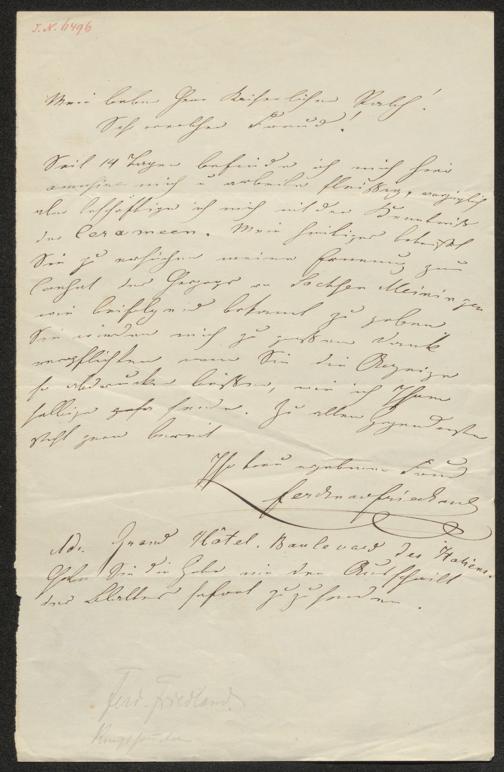 I.N. 6496
Mein lieber Herr Kaiserlicher Rath!
Sehr werther Freund!
Seit 14 Tagen befinde ich mich hier
amusire mich u arbeite fleissig,
aber beschäftige ich mich mit der Kenntniss
des Ceramen. Mein heutiges
Sie zu ersuchen meine Ernennung zum
des Herzogs von Sachsen Meiningen
wie beifolgend bekannt zu geben
Sie würden mich zu großem Dank
verpflichten wenn Sie die Anzeige
so abdrucken ließen, wie ich Ihnen
sende. Zu allen Gegendiensten
steht gern bereit
Ihr treu ergebener Freund
Ferdinand Friedland
Adr. Grand Hôtel. Boulevard des Italiens.
Haben Sie die Güte mir den Ausschnitt
des Blattes sofort zuzusenden.
Ferd. Friedland